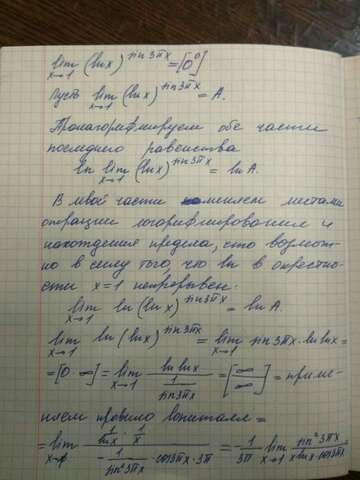 lim x→1 (ln x)^{sin 3πx} = [0⁰]
Пусть lim x→1 (ln x)^{sin 3πx} = A.
Прологарифмируем обе части
последнего равенства
ln lim x→1 (ln x)^{sin 3πx} = ln A.
В левой части меняем местами
операции логарифмирования и
нахождения предела, это возмож-
но в силу того, что ln в окрестно-
сти x=1 непрерывен:
lim x→1 ln (ln x)^{sin 3πx} = ln A.
lim x→1 ln (ln x)^{sin 3πx} = lim x→1 sin 3πx · ln ln x =
= [0·∞] = lim x→1 (ln ln x)/(1/(sin 3πx)) = [∞/∞] = приме-
няем правило Лопиталя =
= lim x→1 (1/(ln x) · 1/x)/(-1/(sin² 3πx) · cos 3πx · 3π) = -1/(3π) lim x→1 (sin² 3πx)/(x ln x cos 3πx)